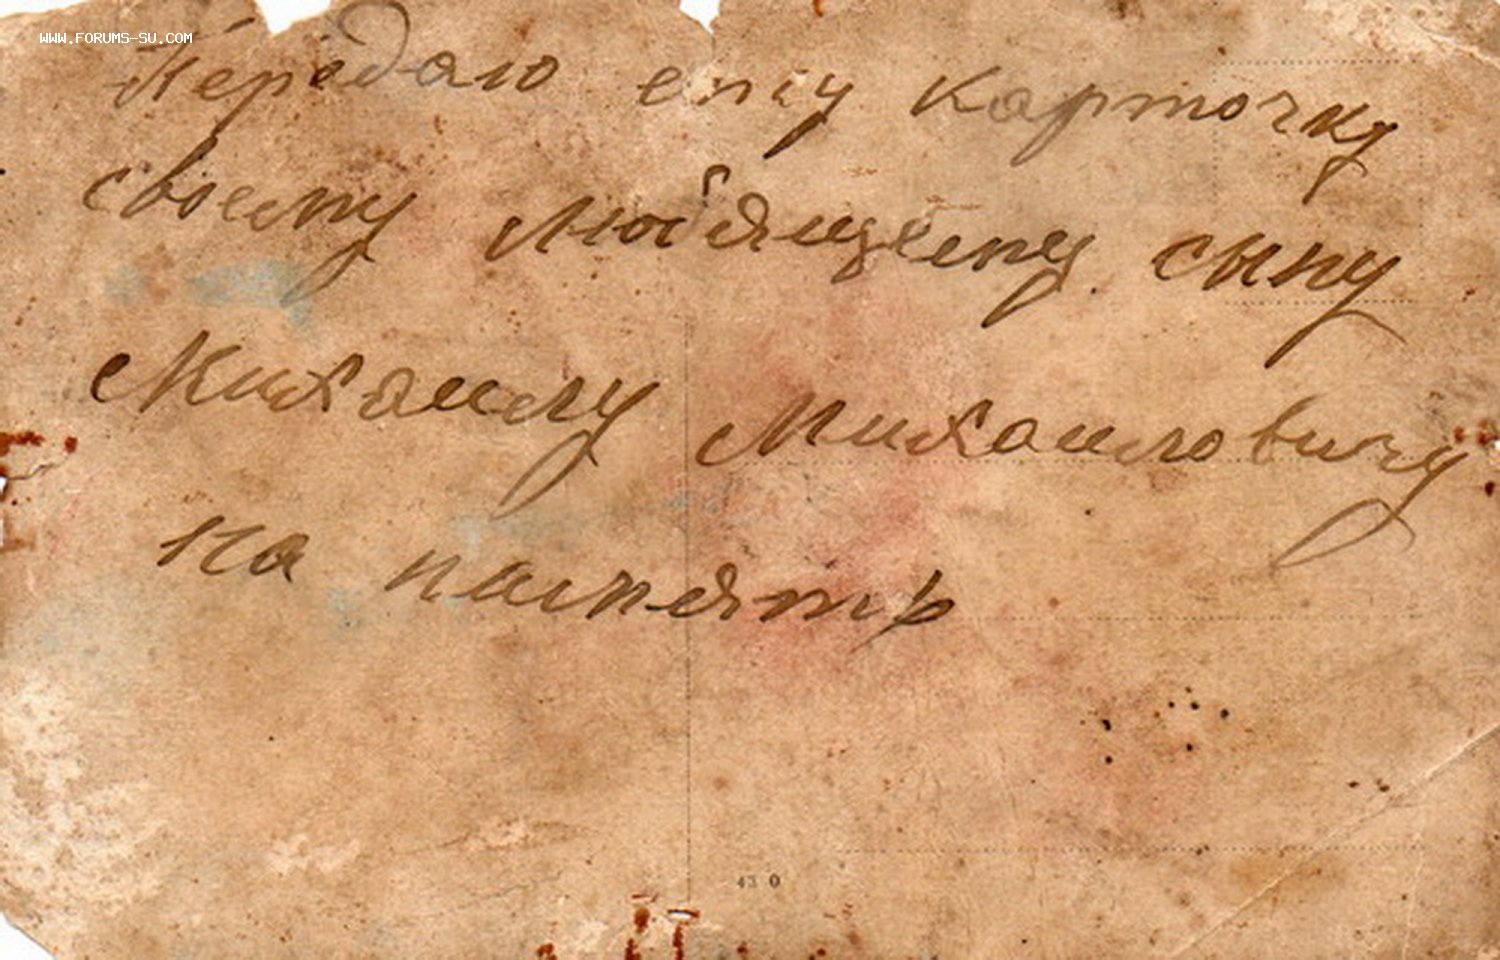 WWW.FORUMS-SU.COM
Передаю ету карточку
своему любящему сыну
Михаилу Михаиловичу
на память
43 0